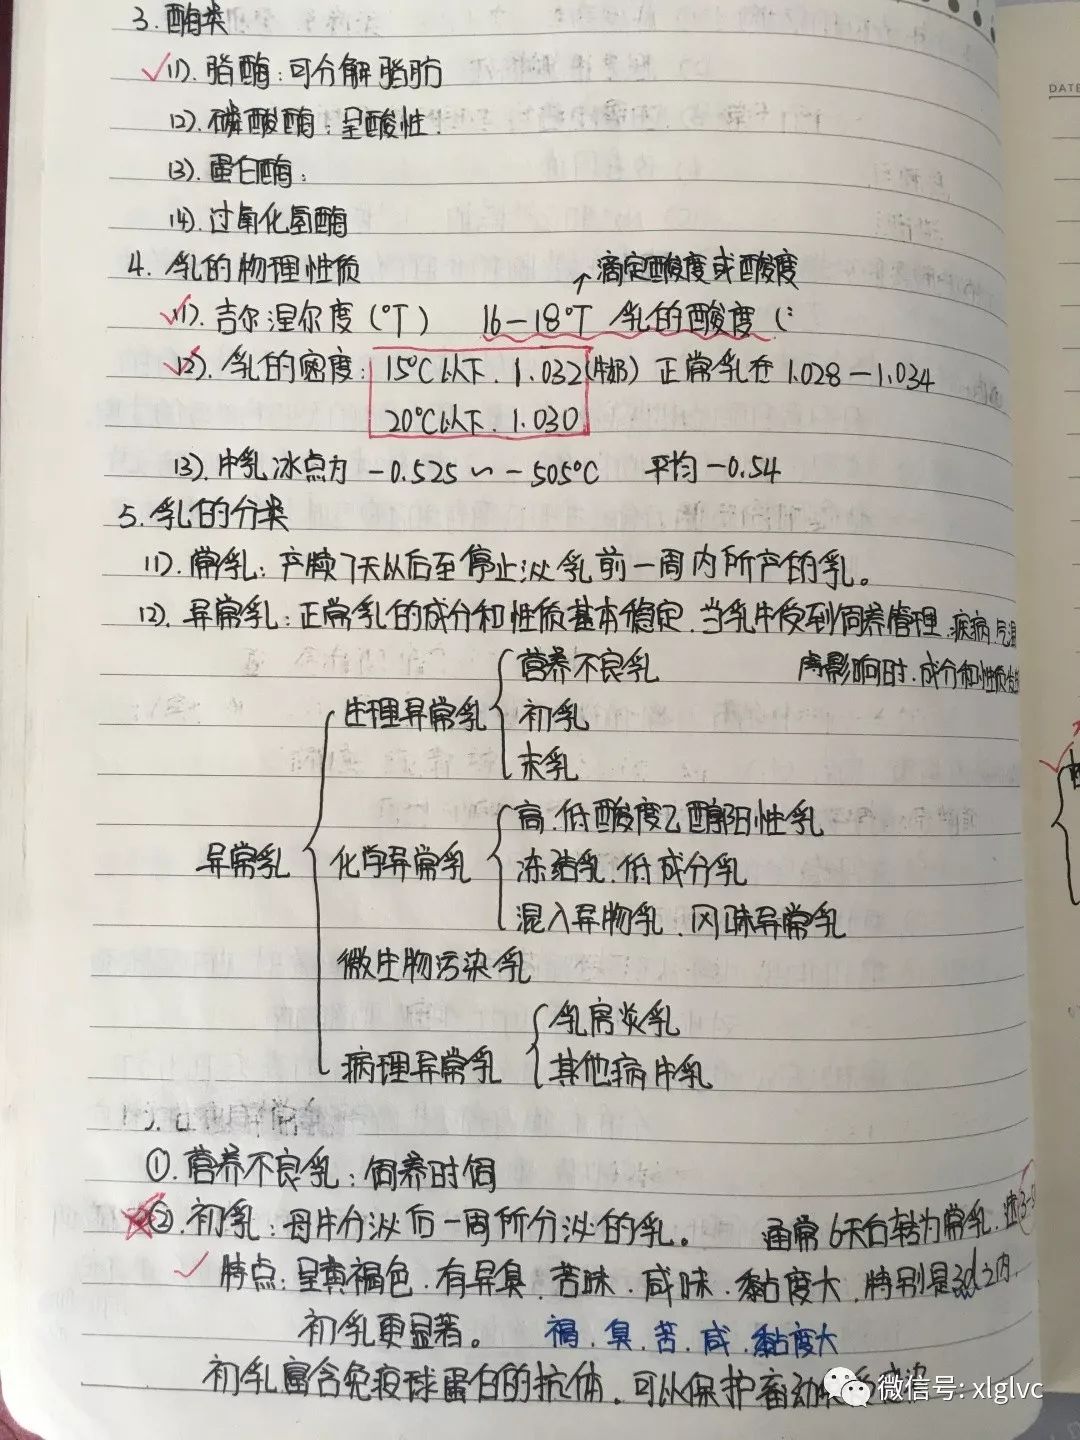 3. 酶类
(1). 脂酶:可分解脂肪
(2). 磷酸酶:呈酸性.
(3). 蛋白酶:
(4). 过氧化氢酶
4. 乳的物理性质 → 滴定酸度或酸度
(1). 吉尔涅尔度(°T) 16—18°T 乳的酸度(
(2). 乳的密度: 15°C以下. 1.032(牛奶) 正常乳在 1.028—1.034
20°C以下. 1.030
(3). 牛乳冰点为 -0.525 ~ -505°C 平均 -0.54
5. 乳的分类
(1). 常乳:产犊7天以后至停止泌乳前一周内所产的乳。
(2). 异常乳:正常乳的成分和性质基本稳定.当乳牛受到饲养管理.疾病.气温
影响时.成分和性质发
异常乳
生理异常乳
营养不良乳
初乳
末乳
化学异常乳
高.低酸度乙醇阳性乳
冻结乳.低成分乳
混入异物乳.风味异常乳
微生物污染乳
病理异常乳
乳房炎乳
其他病牛乳
①. 营养不良乳:饲养时饲
②. 初乳:母牛分泌后一周所分泌的乳。 通常6天后转为常乳.
特点:呈黄褐色.有异臭.苦味.咸味.黏度大.特别是3d之内.
初乳更显著。 褐.臭.苦.咸.黏度大
初乳富含免疫球蛋白的抗体.可以保护畜幼
微信号: xlglvc
DATE